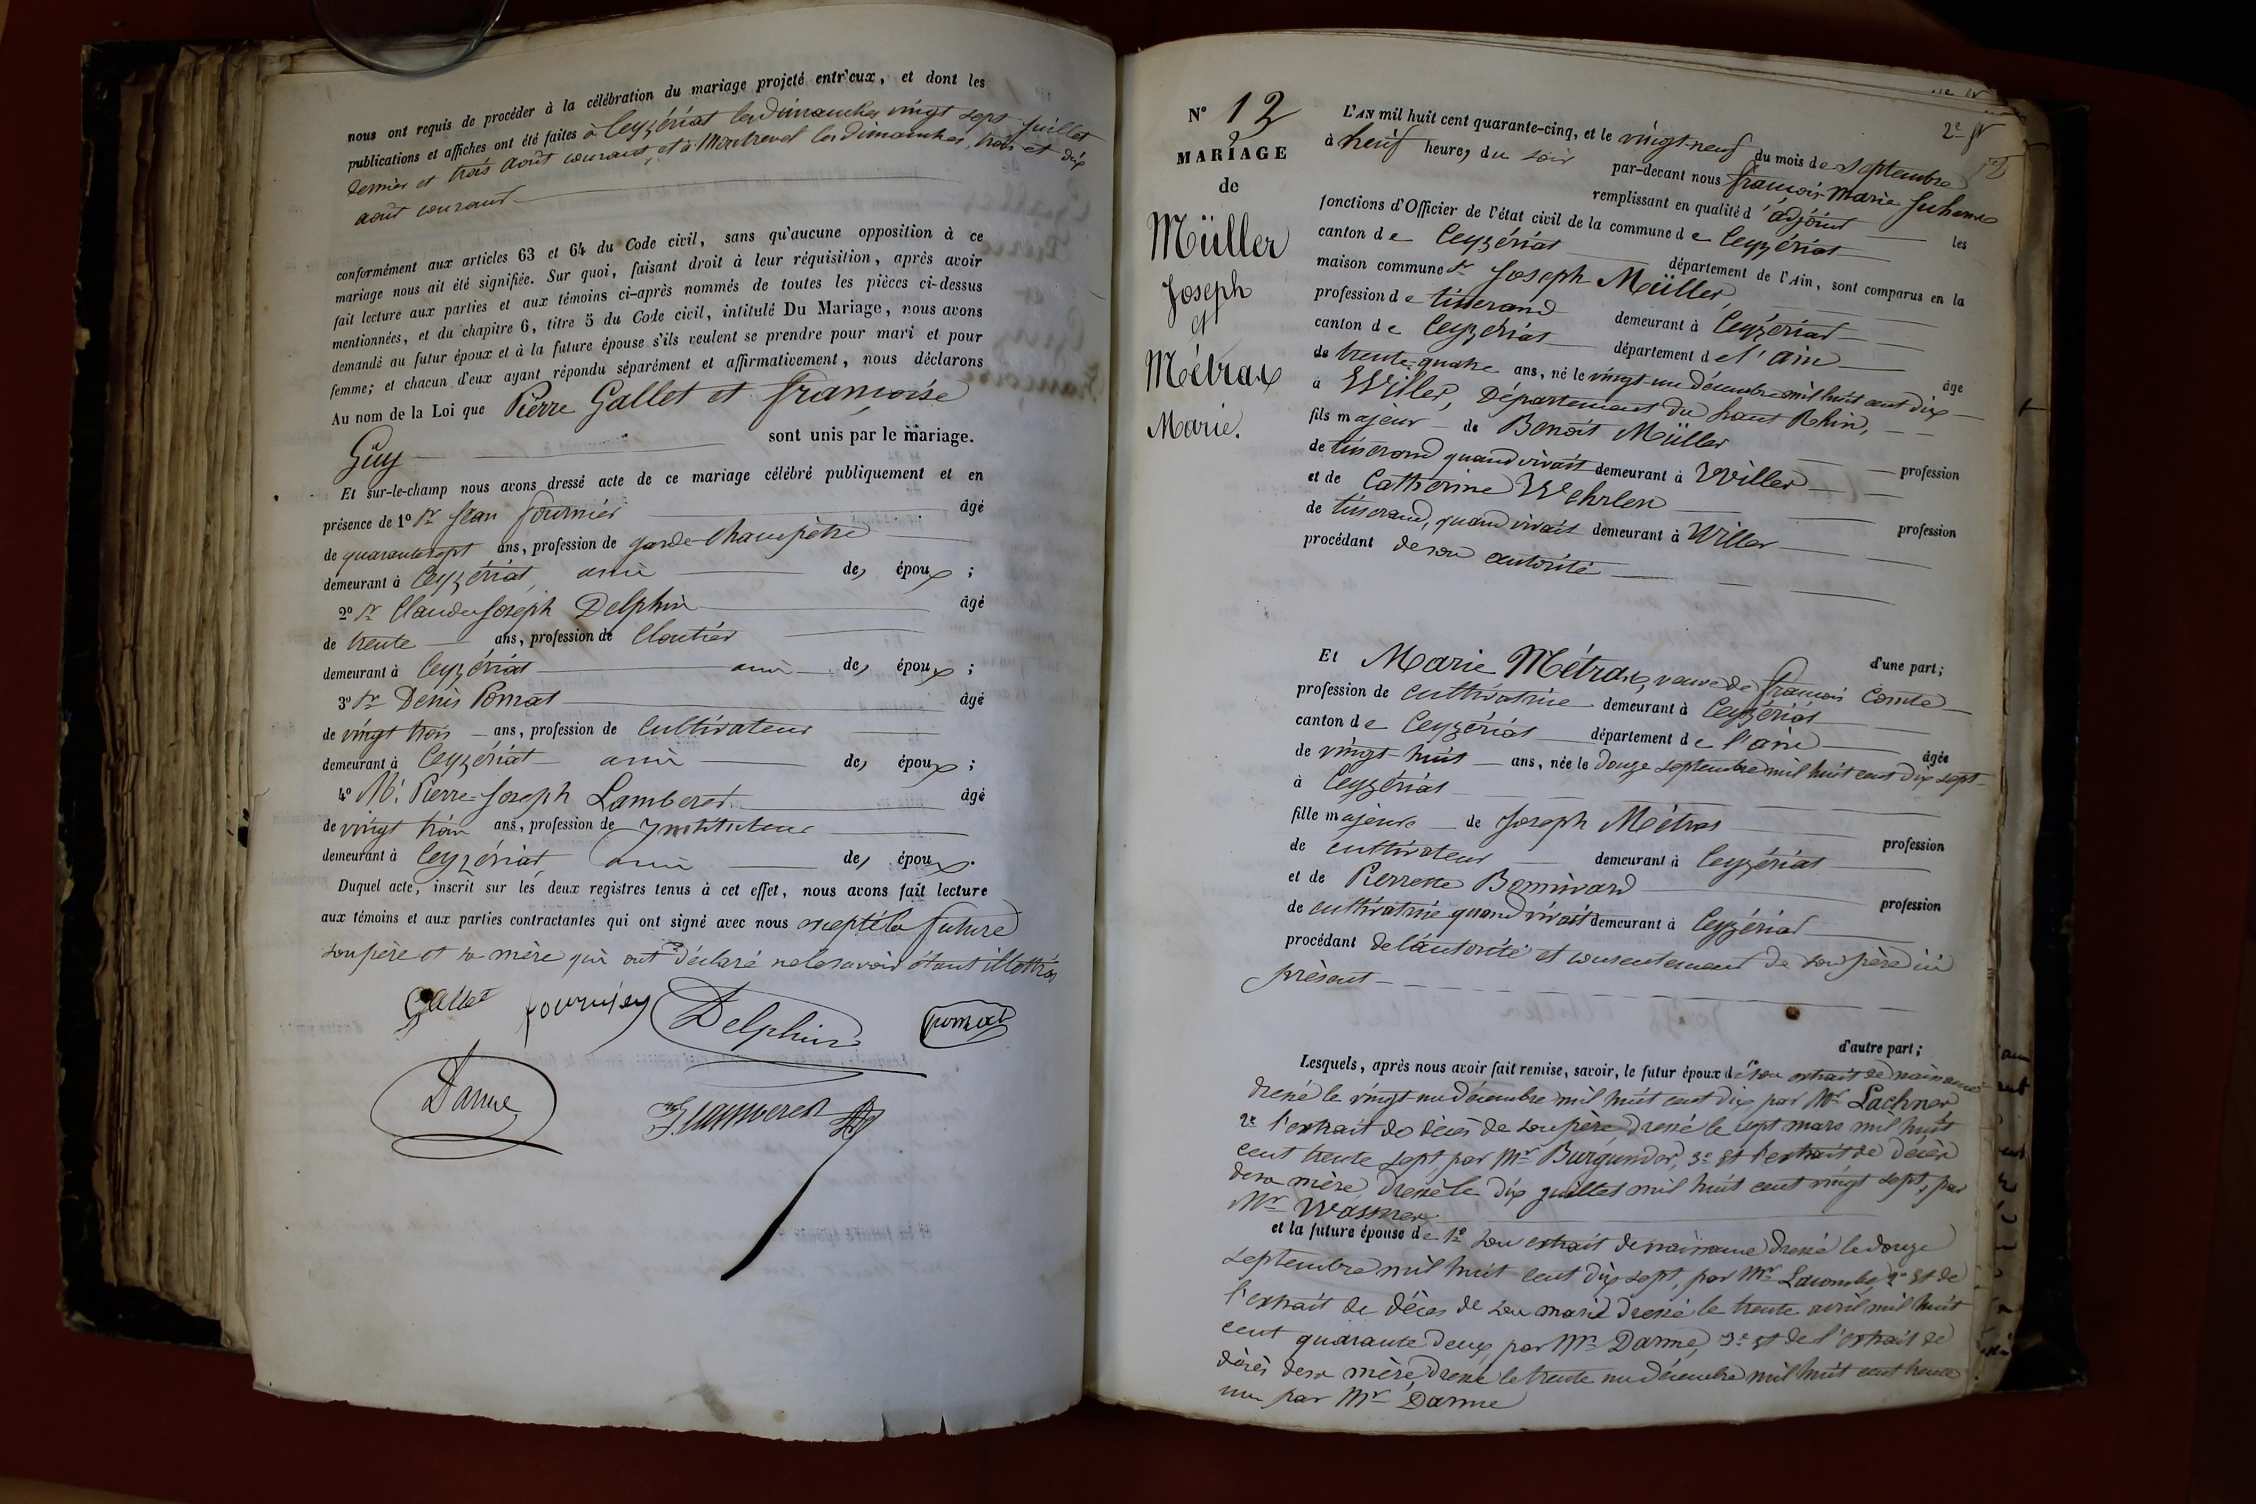 nous ont requis de procéder à la célébration du mariage projeté entr'eux, et dont les
publications et affiches ont été faites à Ceyzériat les dimanches vingt sept juillet
dernier et trois août courant, et à Montrevel les dimanches trois et dix
août courant
conformément aux articles 63 et 64 du Code civil, sans qu'aucune opposition à ce
mariage nous ait été signifiée. Sur quoi, faisant droit à leur réquisition, après avoir
fait lecture aux parties et aux témoins ci-après nommés de toutes les pièces ci-dessus
mentionnées, et du chapitre 6, titre 5 du Code civil, intitulé Du Mariage, nous avons
demandé au futur époux et à la future épouse s'ils veulent se prendre pour mari et pour
femme; et chacun d'eux ayant répondu séparément et affirmativement, nous déclarons
Au nom de la Loi que Pierre Gallet et Françoise
Guy sont unis par le mariage.
Et sur-le-champ nous avons dressé acte de ce mariage célébré publiquement et en
présence de 1° Sr Jean Fournier âgé
de quarante sept ans, profession de garde-champêtre
demeurant à Ceyzériat, ami des époux ;
2° Sr Claude Joseph Delphin âgé
de trente ans, profession de Cloutier
demeurant à Ceyzériat ami des époux ;
3° Sr Denis Pomat âgé
de vingt trois ans, profession de Cultivateur
demeurant à Ceyzériat ami des époux ;
4° Mr Pierre-Joseph Lamberet âgé
de vingt trois ans, profession de Instituteur
demeurant à Ceyzériat ami des époux.
Duquel acte, inscrit sur les deux registres tenus à cet effet, nous avons fait lecture
aux témoins et aux parties contractantes qui ont signé avec nous excepté la future
son père et sa mère qui ont déclaré ne le savoir étant illettrés
Gallet fournier Delphin pomat
Darme Lamberet
N° 12
MARIAGE
de
Müller
Joseph
et
Métrax
Marie.
2e
L'AN mil huit cent quarante-cinq, et le vingt-neuf du mois de septembre
à neuf heures du soir par-devant nous françois-Marie
remplissant en qualité d'adjoint les
fonctions d'Officier de l'état civil de la commune de Ceyzériat
canton de Ceyzériat département de l'Ain, sont comparus en la
maison commune Sr Joseph Müller,
profession de tisserand demeurant à Ceyzériat
canton de Ceyzériat département de l'ain âgé
de trente-quatre ans, né le vingt-un décembre mil huit cent dix
à Willer, Département du haut Rhin,
fils majeur de Benoit Müller profession
de tisserand quand vivait demeurant à Willer
et de Catherine Wehrlen profession
de tisserand, quand vivait demeurant à Willer
procédant de son autorité
d'une part;
Et Marie Métrax, veuve de françois Comte
profession de cultivatrice demeurant à Ceyzériat
canton de Ceyzériat département de l'ain âgée
de vingt-huit ans, née le douze septembre mil huit cent dix sept
à Ceyzériat
fille majeure de Joseph Métras profession
de cultivateur demeurant à Ceyzériat
et de Pierrette Bonnivard profession
de cultivatrice quand vivait demeurant à Ceyzériat
procédant de l'autorité et consentement de son père ici
présent
d'autre part;
Lesquels, après nous avoir fait remise, savoir, le futur époux de son extrait de naissance
dressé le vingt-un décembre mil huit cent dix par Mr Lachner
2e l'extrait de décès de son père dressé le sept mars mil huit
cent trente sept, par Mr Burgunder, 3e et l'extrait de décès
de sa mère, dressé le dix juillet mil huit cent vingt sept, par
Mr Wasmer
et la future épouse de 1° son extrait de naissance dressé le douze
septembre mil huit cent dix sept, par Mr Lacombe, 2° et de
l'extrait de décès de son mari dressé le trente avril mil huit
cent quarante deux, par Mr Darme, 3e et de l'extrait de
décès de sa mère, dressé le trente un décembre mil huit cent trente
un par Mr Darme